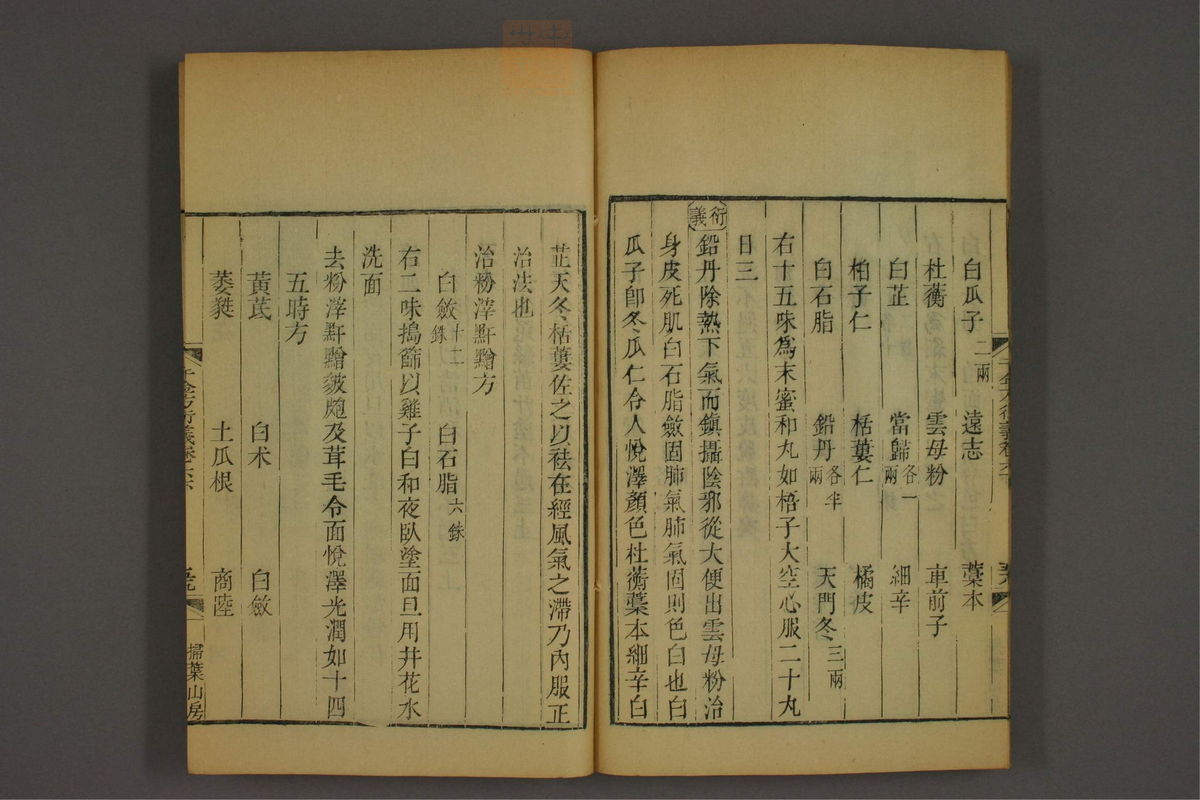 白瓜子二兩 遠志 藁本
杜蘅 雲母粉 車前子
白芷 當歸各一兩 細辛
柏子仁 栝蔞仁 橘皮
白石脂 鉛丹各半兩 天門冬三兩
右十五味爲末蜜和丸如梧子大空心服二十丸
日三
衍義
鉛丹除熱下氣而鎮攝陰邪從大便出雲母粉治
身皮死肌白石脂斂固肺氣肺氣固則色白也白
瓜子卽冬瓜仁令人悅澤顏色杜蘅藁本細辛白
芷天冬栝蔞佐之以祛在經風氣之滯乃內服正
治法也
治粉滓䵟䵴方
白斂十二銖 白石脂六銖
右二味搗篩以雞子白和夜臥塗面旦用井花水
洗面
去粉滓䵟䵴皴皰及茸毛令面悅澤光潤如十四
五時方
黃芪 白术 白斂
萎蕤 土瓜根 商陸
掃葉山房